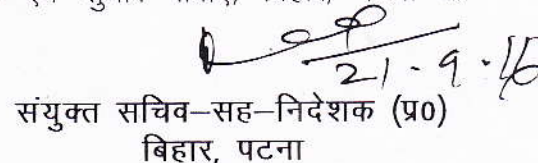 21-9-16
संयुक्त सचिव–सह–निदेशक (प्र0)
बिहार, पटना